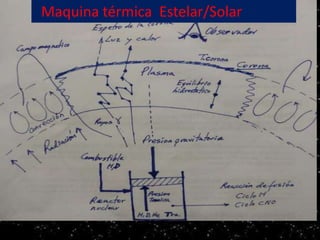 Maquina térmica Estelar/Solar
Espetro de la corona
Observador
& Luz y calor
Campo magnetico
T. corona
Corona
Plasma
Equilibrio
hidrostatico
Convección
Rayos γ
Radiación
Presion gravitatoria
Combustible
H,D
Reacción de fusión
Presion
Termica
Ciclo H
Reactor
nuclear
Ciclo CNO
H, D, He